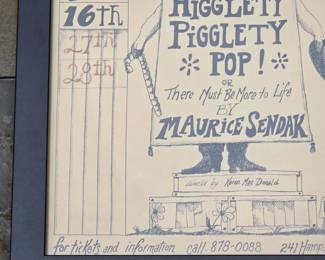 16th
27th
28th
HIGGLETY
PIGGLETY
POP!
OR
There Must Be More to Life
BY
MAURICE SENDAK
Karen MacDonald
for tickets and information call 878-0088
241